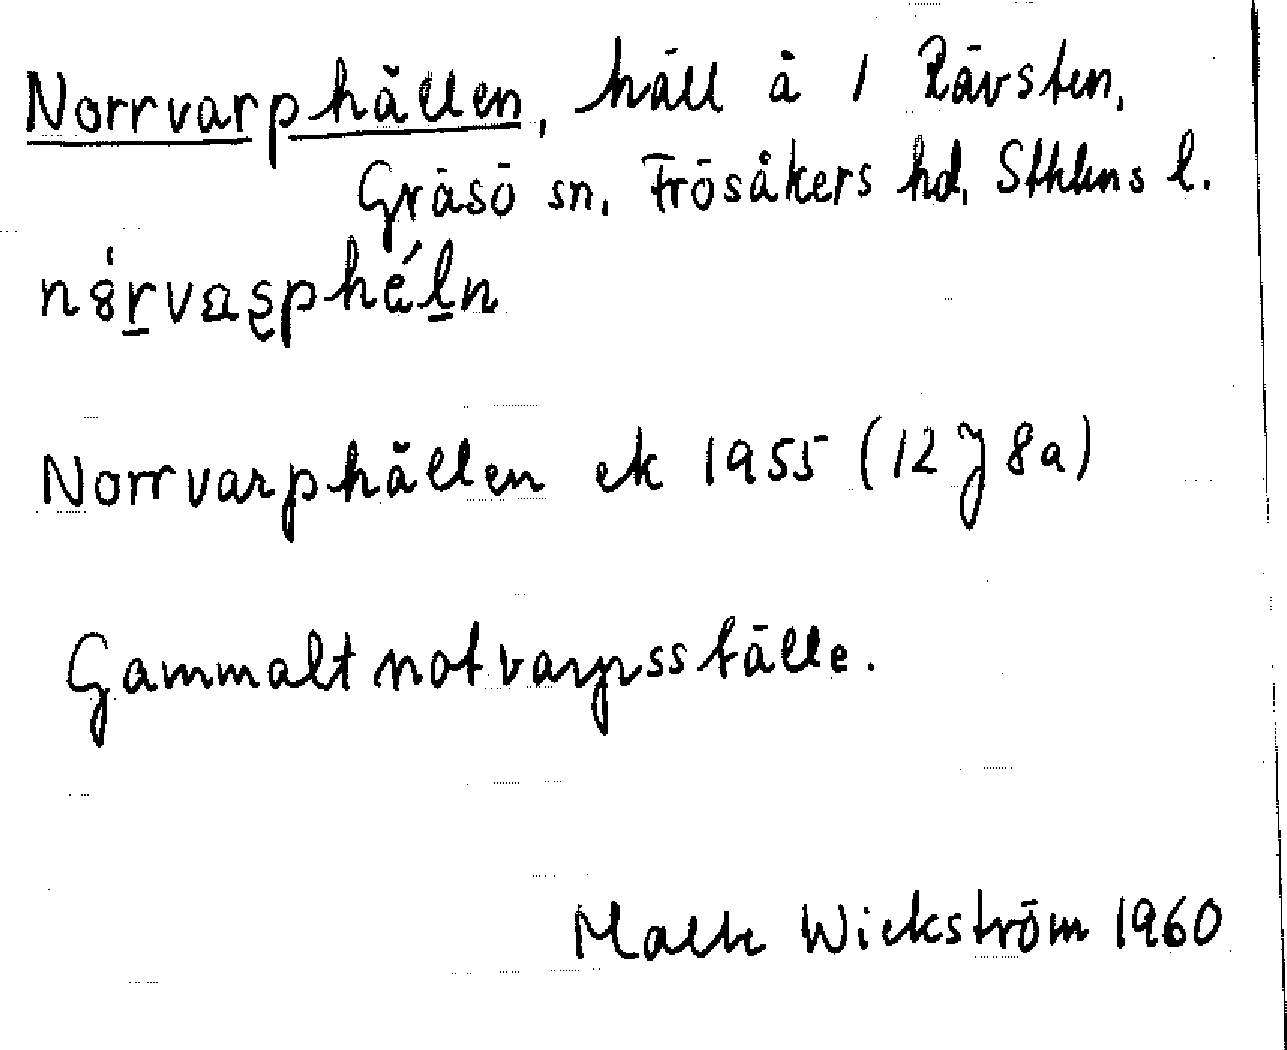 Norrvarphällen, häll å 1 Rävsten,
Gräsö sn, Frösåkers hd, Sthlms l.
Norrvarphällen ek 1955 (12 J 8a)
Gammalt notvarpsställe.
Wickström 1960